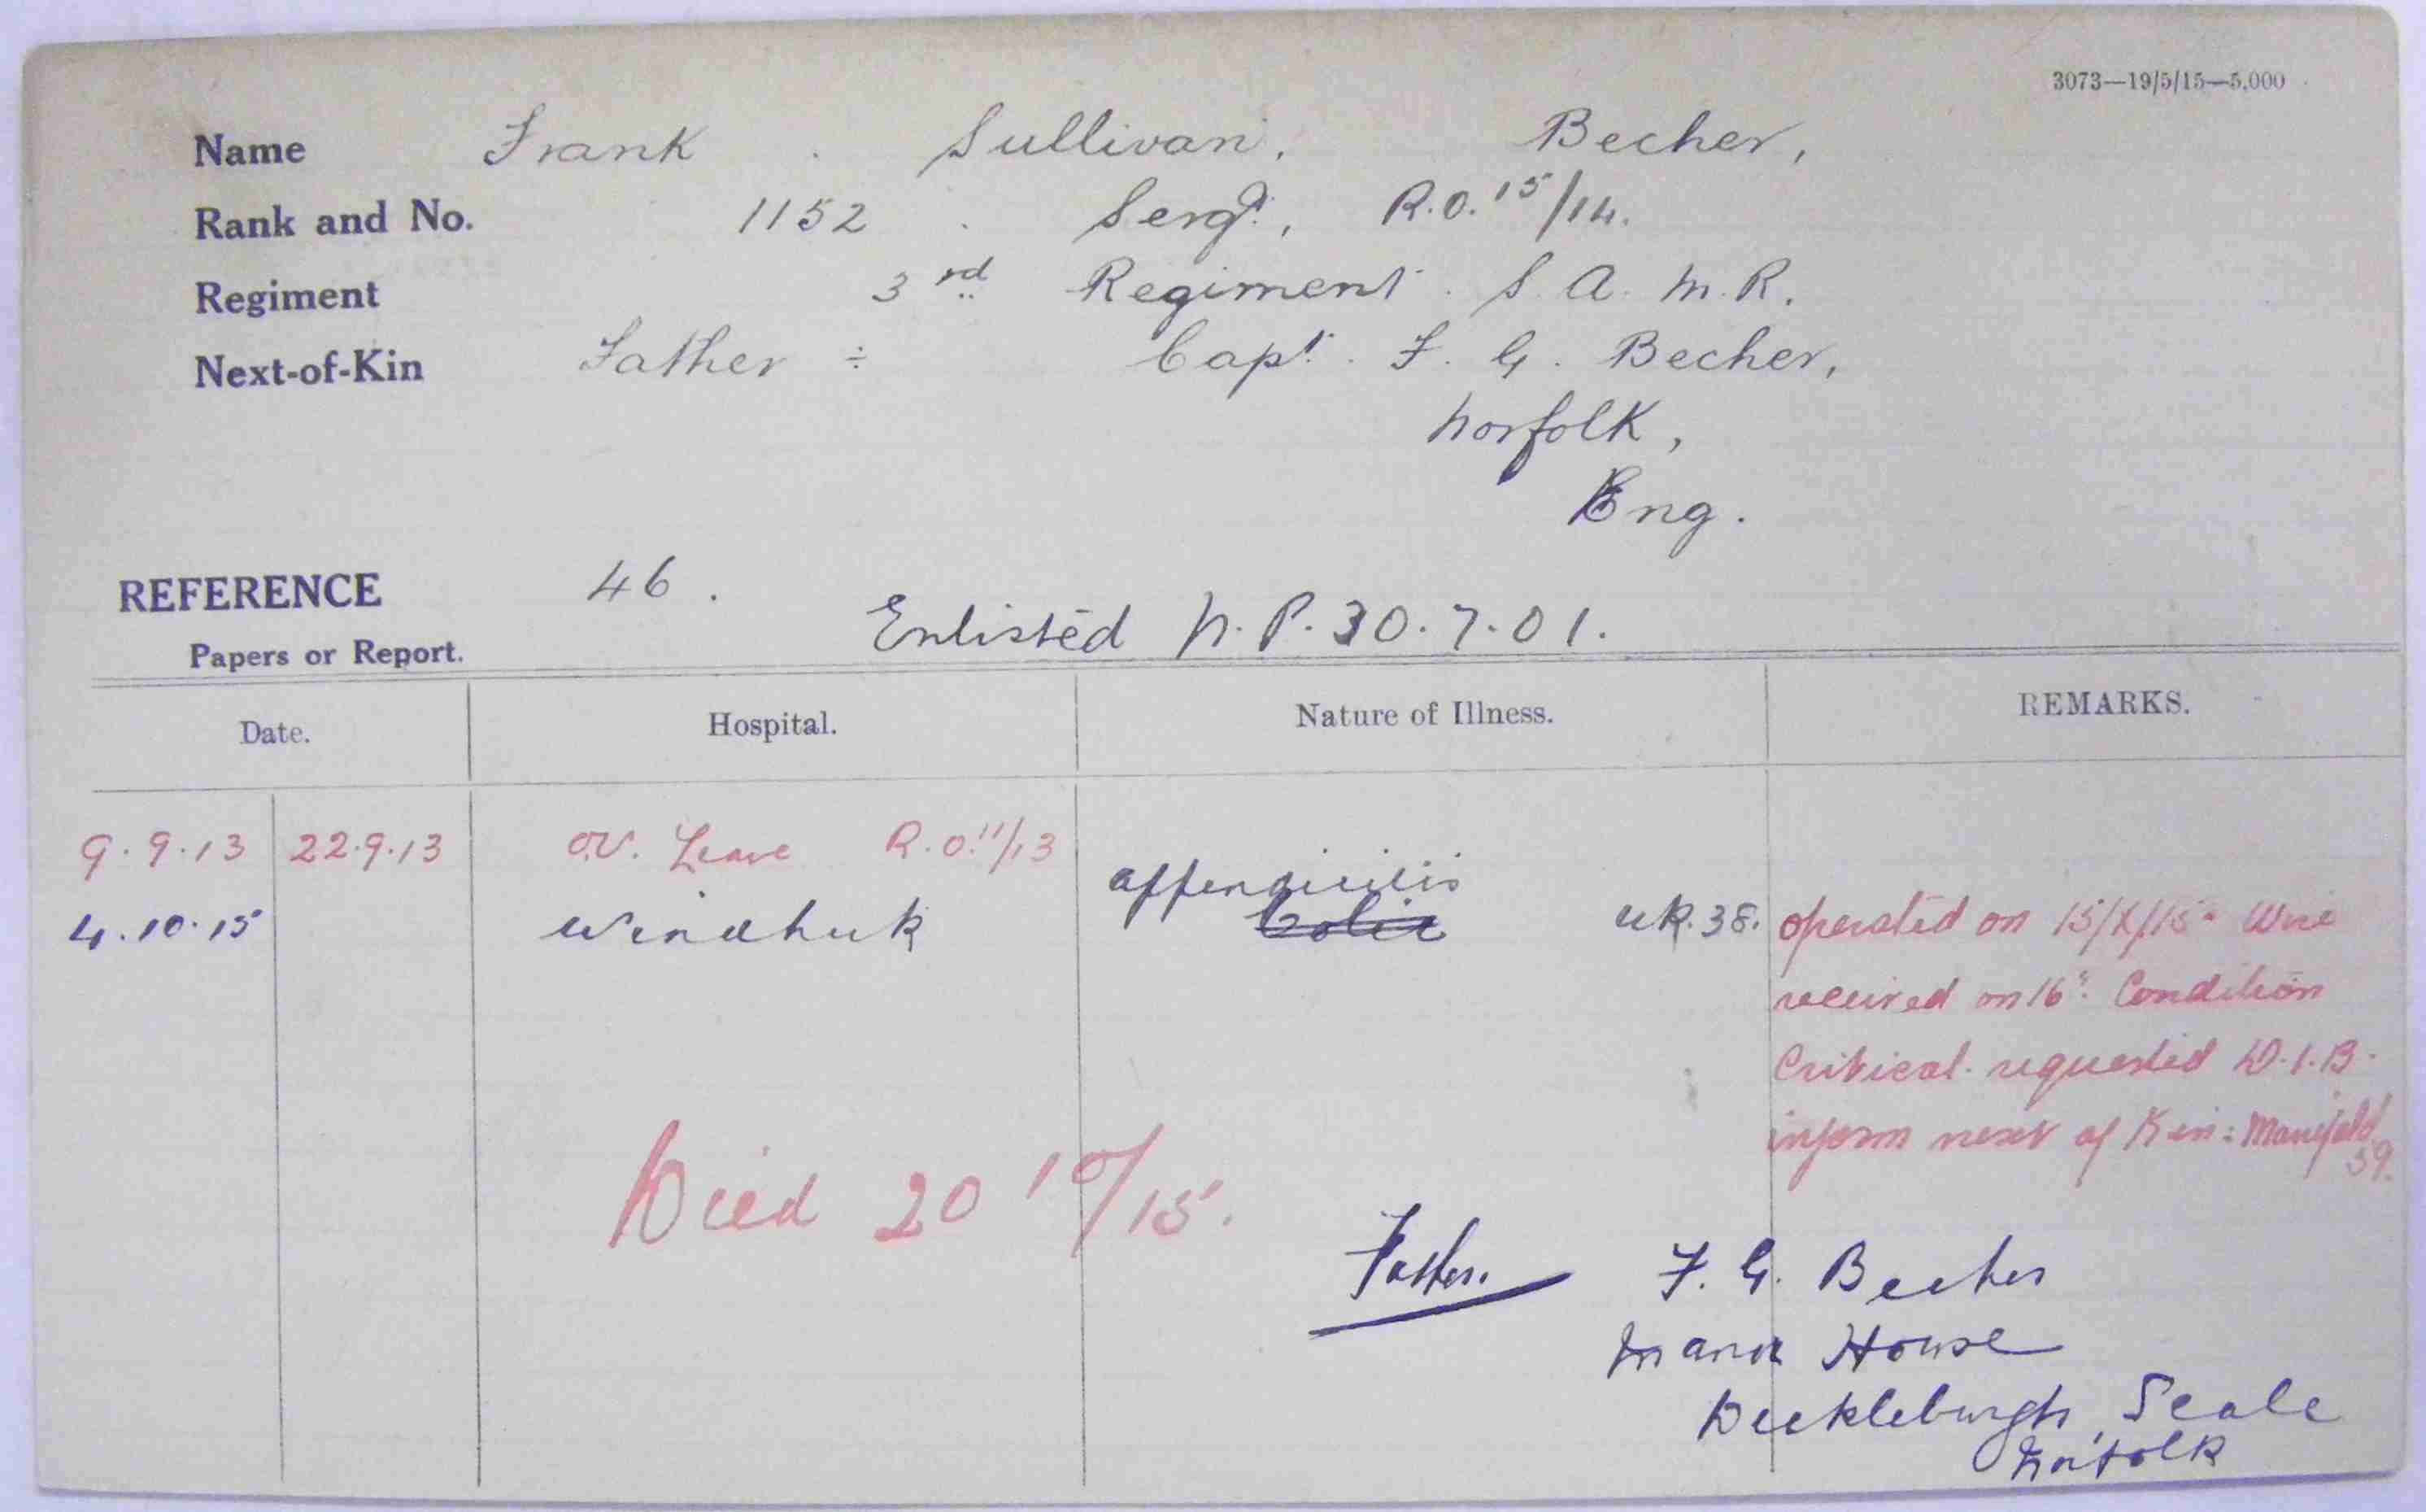 3073—19/5/15—5,000
Name Frank Sullivan, Becher,
Rank and No. 1152 Sergt, R.O. 15/14.
Regiment 3rd Regiment S. A. M. R.
Next-of-Kin Father ÷ Capt. F. G. Becher,
Norfolk,
Eng.
REFERENCE 46.
Enlisted N.P. 30.7.01.
Papers or Report.
Date. Hospital. Nature of Illness. REMARKS.
9.9.13 22.9.13 O.V. Leave R.O. 11/13
appendicitis
4.10.15 Windhuk Colic UR.38. operated on 15/X/15. Wire
received on 16th. Condition
Critical. requested D.I.B.
inform next of Kin:
59.
Died 20 10/15.
Father. F. G. Becher
Manor House
Scole
Norfolk